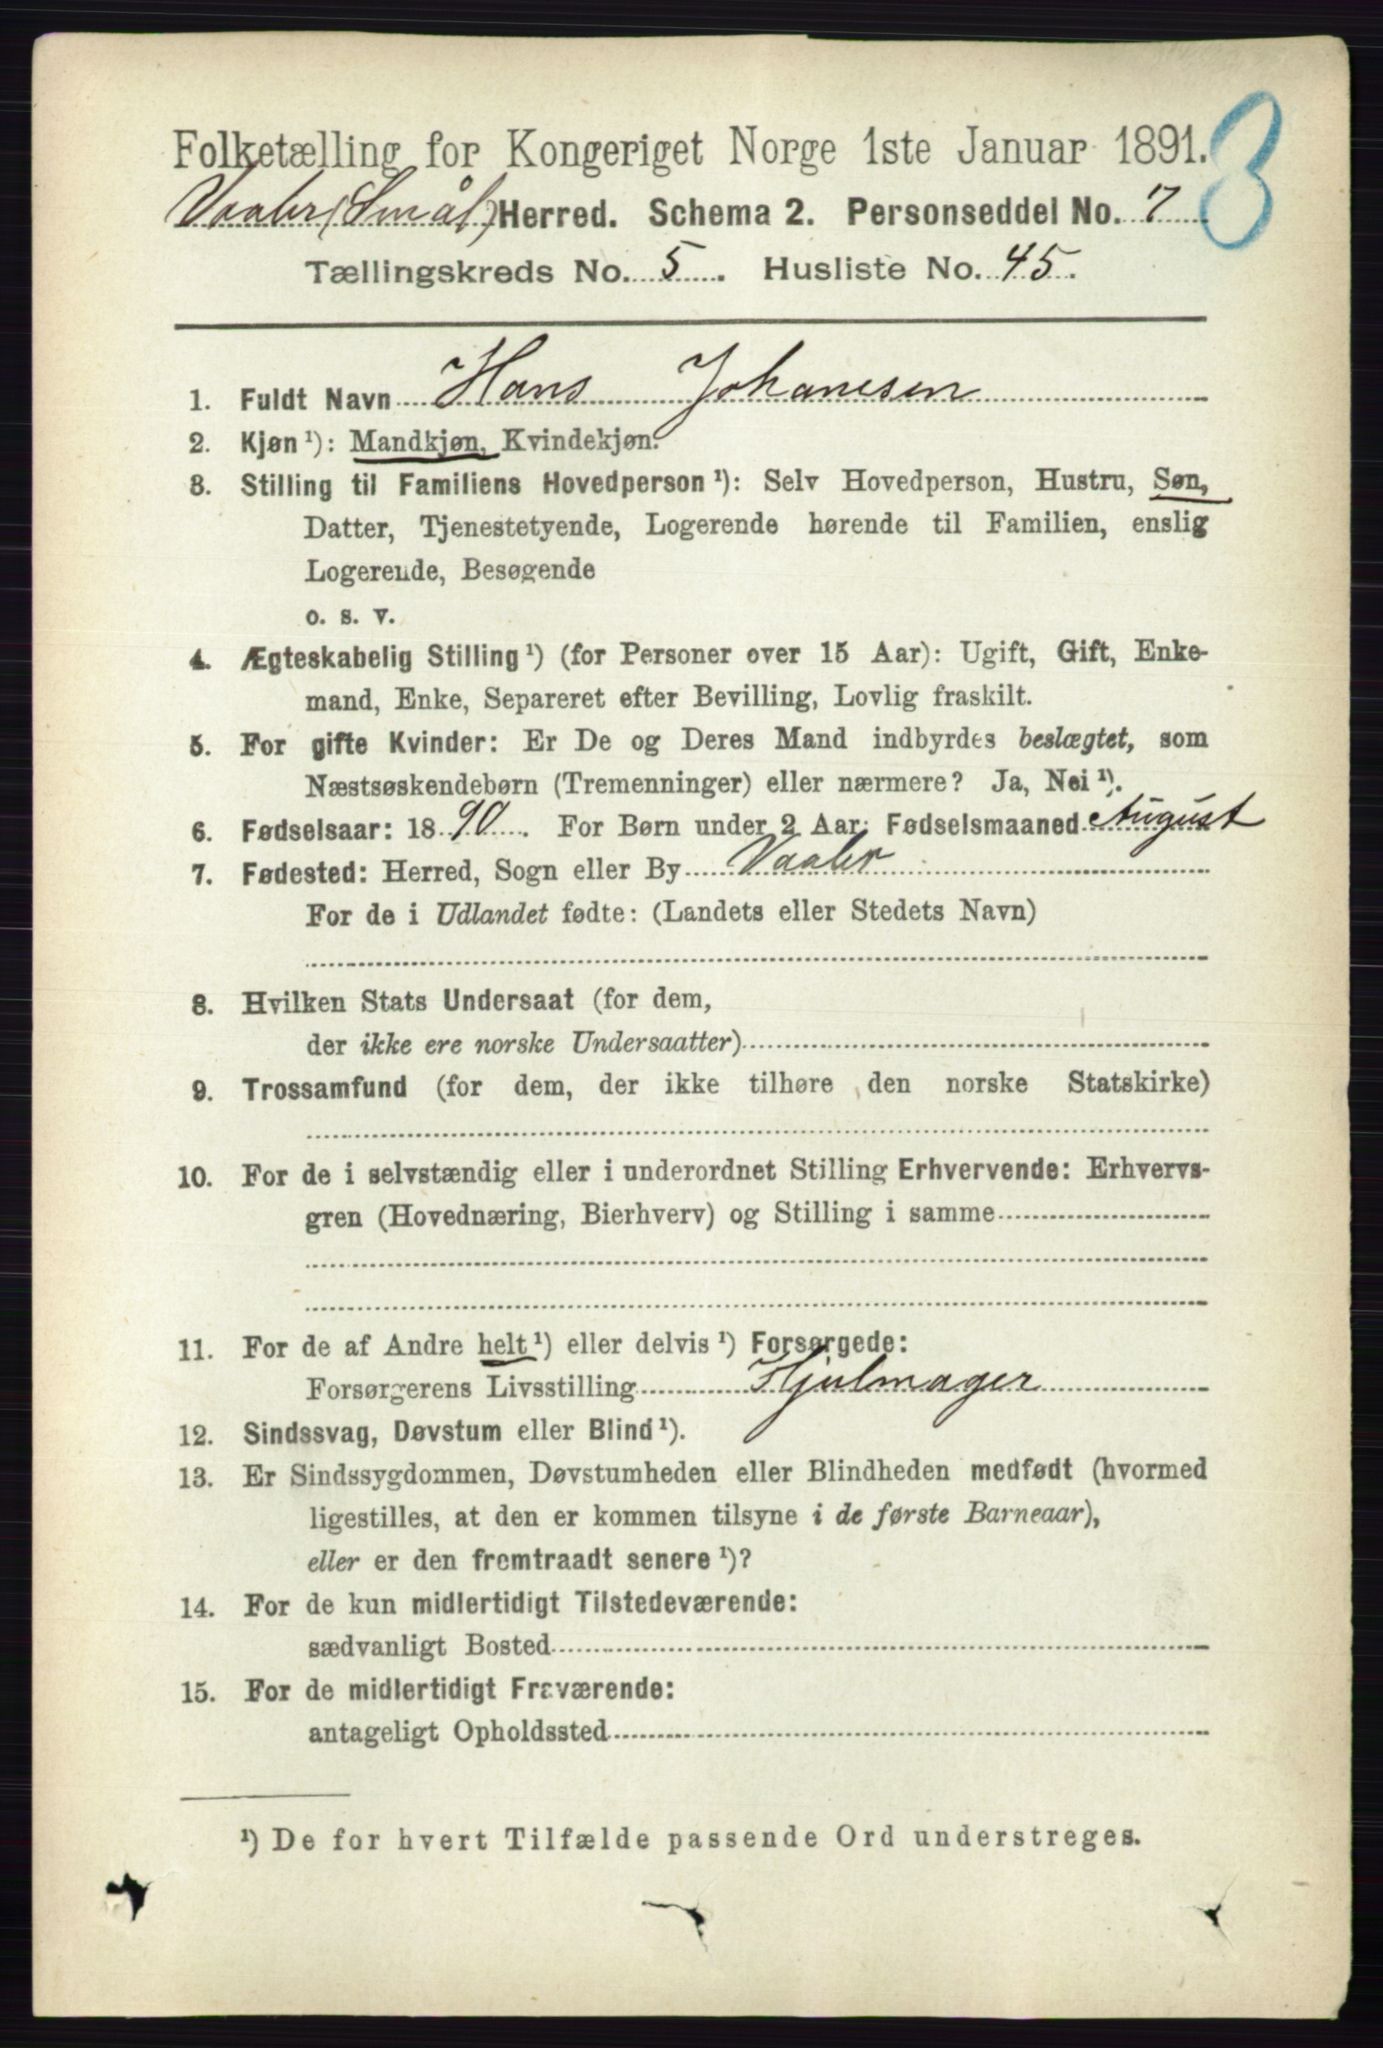 Folketælling for Kongeriget Norge 1ste Januar 1891.
3
Vaaler (Smål) Herred. Schema 2. Personseddel No. 7
Tællingskreds No. 5. Husliste No. 45.
1. Fuldt Navn Hans Johanesen
2. Kjøn ¹): Mandkjøn, Kvindekjøn.
3. Stilling til Familiens Hovedperson ¹): Selv Hovedperson, Hustru, Søn,
Datter, Tjenestetyende, Logerende hørende til Familien, enslig
Logerende, Besøgende
o. s. v.
4. Ægteskabelig Stilling ¹) (for Personer over 15 Aar): Ugift, Gift, Enke-
mand, Enke, Separeret efter Bevilling, Lovlig fraskilt.
5. For gifte Kvinder: Er De og Deres Mand indbyrdes beslægtet, som
Næstsøskendebørn (Tremenninger) eller nærmere? Ja, Nei ¹).
6. Fødselsaar: 1890. For Børn under 2 Aar: Fødselsmaaned August
7. Fødested: Herred, Sogn eller By Vaaler
For de i Udlandet fødte: (Landets eller Stedets Navn)
8. Hvilken Stats Undersaat (for dem,
der ikke ere norske Undersaatter)
9. Trossamfund (for dem, der ikke tilhøre den norske Statskirke)
10. For de i selvstændig eller i underordnet Stilling Erhvervende: Erhvervs-
gren (Hovednæring, Bierhverv) og Stilling i samme
11. For de af Andre helt ¹) eller delvis ¹) Forsørgede:
Forsørgerens Livsstilling Hjulmager
12. Sindssvag, Døvstum eller Blind ¹).
13. Er Sindssygdommen, Døvstumheden eller Blindheden medfødt (hvormed
ligestilles, at den er kommen tilsyne i de første Barneaar),
eller er den fremtraadt senere ¹)?
14. For de kun midlertidigt Tilstedeværende:
sædvanligt Bosted
15. For de midlertidigt Fraværende:
antageligt Opholdssted
¹) De for hvert Tilfælde passende Ord understreges.